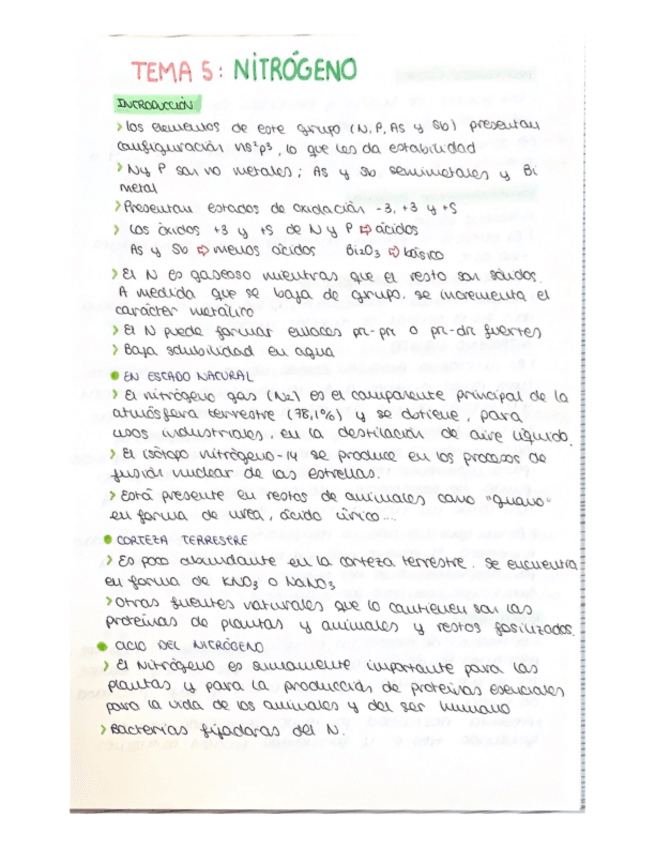 TEMA 5: NITRÓGENO
INTRODUCCIÓN
> Los elementos de este grupo (N, P, As y Sb) presentan
configuración ns²p³, lo que les da estabilidad
> N y P son no metales; As y Sb semimetales y Bi
metal
> Presentan estados de oxidación -3, +3 y +5
> Los óxidos +3 y +5 de N y P ⇨ ácidos
As y Sb ⇨ menos ácidos Bi₂O₃ ⇨ básico
> El N es gaseoso mientras que el resto son sólidos.
A medida que se baja de grupo, se incrementa el
carácter metálico
> El N puede formar enlaces pπ-pπ o pπ-dπ fuertes
> Baja solubilidad en agua
• EN ESTADO NATURAL
> El nitrógeno gas (N₂) es el componente principal de la
atmósfera terrestre (78,1%) y se obtiene, para
usos industriales, en la destilación de aire líquido.
> El isótopo nitrógeno-14 se produce en los procesos de
fusión nuclear de las estrellas.
> Está presente en restos de animales como "guano"
en forma de urea, ácido úrico...
• CORTEZA TERRESTRE
> Es poco abundante en la corteza terrestre. Se encuentra
en forma de KNO₃ o NaNO₃
> Otras fuentes naturales que lo contienen son las
proteínas de plantas y animales y restos fosilizados.
• CICLO DEL NITRÓGENO
> El Nitrógeno es sumamente importante para las
plantas y para la producción de proteínas esenciales
para la vida de los animales y del ser humano
> Bacterias fijadoras del N.